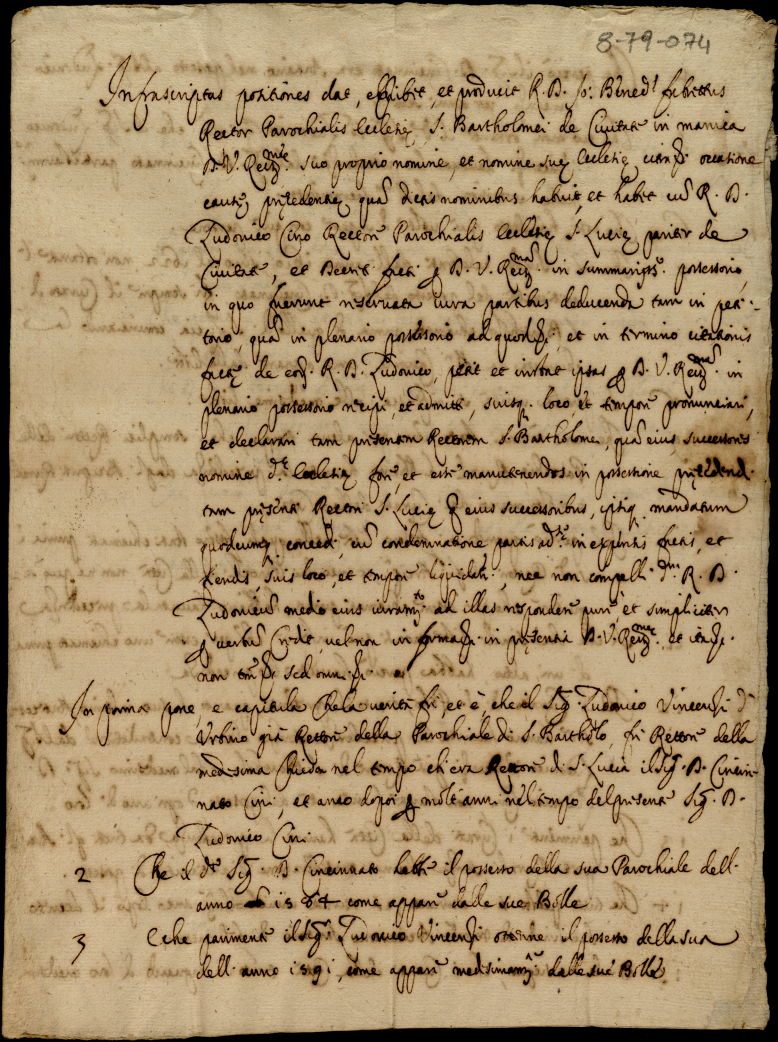 8-79-074
Infrascriptas positiones dat, exhibet, et producit R. D. Jo: Bened.s fabrettus
Rector Parochialis Ecclesię S. Bartholomei de Civitate in manica
D. V. Reu.mę suo proprio nomine, et nomine suę Ecclesię occasione
causę pręcedentię quā dictis nominibus habuit, et habet cū R. D.
Ludovico Cino Rectore Parochialis Ecclesię S. Lucię pariter de
Civitate, et Decreti facti D. V. Reu.ma in possessorio,
in quo fuerunt reservata iura partibus deducenda tam in peti-
torio, quā in plenario possessorio et in termino citationis
factę de R. D. Ludovico, petit et instat ipsas D. V. Reu.ma in
plenario possessorio recipi, et admitti, suisq. loco et tempore pronunciari,
et declarari tam presentem Rectorem S. Bartholomei, quā eius successores
nomine d.ę Ecclesię fore, et esse manutenendos in possessione pręcedend.
tam pręsenti Rectori S. Lucię eius successoribus, mandatum
quodcunq. concedi, cū condemnatione partis ad.sę in expensis factis, et
fiendis suis loco, et tempore liquidati, nec non compelli d.m R. D.
Ludovicū medio eius iuram.to ad illas respondere pure, et simpliciter
verbū Credit, vel non in forma in pręsentia D. V. Reu.mę et
non sed omni
In prima pone, e capitula che la verità fu, et è, che il Sig. Ludovico Vincenzi d'
Urbino già Rettore della Parochiale di S. Bartholo, fu Rettore della
medesima Chiesa nel tempo ch'era Rettore di S. Lucia il Sig. D. Cincin-
nato Cini, et anco dopoi molt'anni nel tempo del presente Sig. D.
Ludovico Cini
2 Che il d.o Sig. D. Cincinnato hebbe il possesso della sua Parochiale dell'
anno 1564 come appare dalle sue Bolle
3 Che parimente il Sig. Ludovico Vincenzi ottenne il possesso della sua
dell'anno 1591, come appare medesimam.te dalle sue Bolle